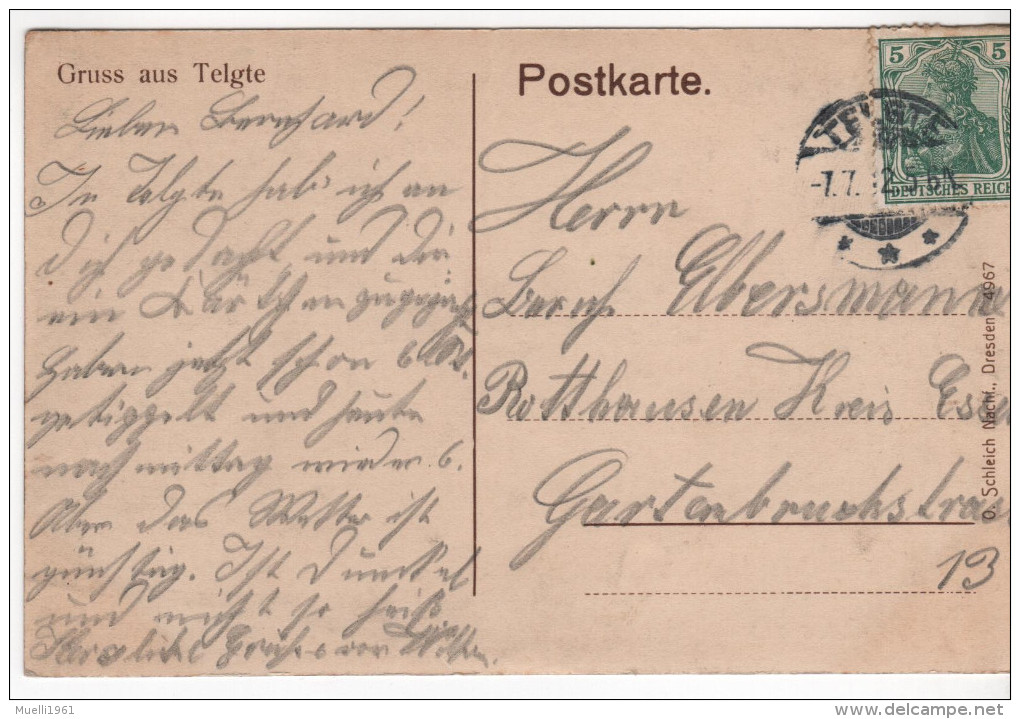 Gruss aus Telgte
Lieber Bernhard!
In Telgte hab' ich an
Dich gedacht und Dir
ein Kärtchen zugedacht
Haben jetzt schon 6
getippelt und heute
nachmittag wieder 6.
Aber das Wetter ist
günstig. Ist dunkel
und nicht so heiß
Herzliche Grüße von
Postkarte.
5 5
DEUTSCHES REICH
TELGTE
-7.7.12
Herrn
Bernh. Elbersmann
Rotthausen Kreis Essen
Gartenbruchstras
13
O. Schleich Nachf., Dresden 4967
Muelli1961
delcampe.net